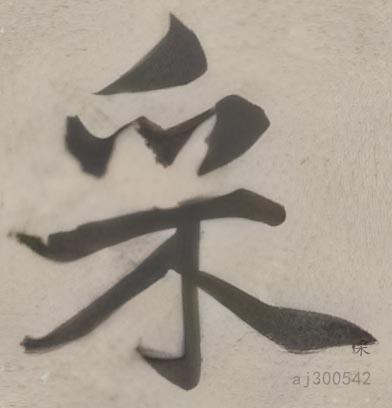 采
采
aj300542